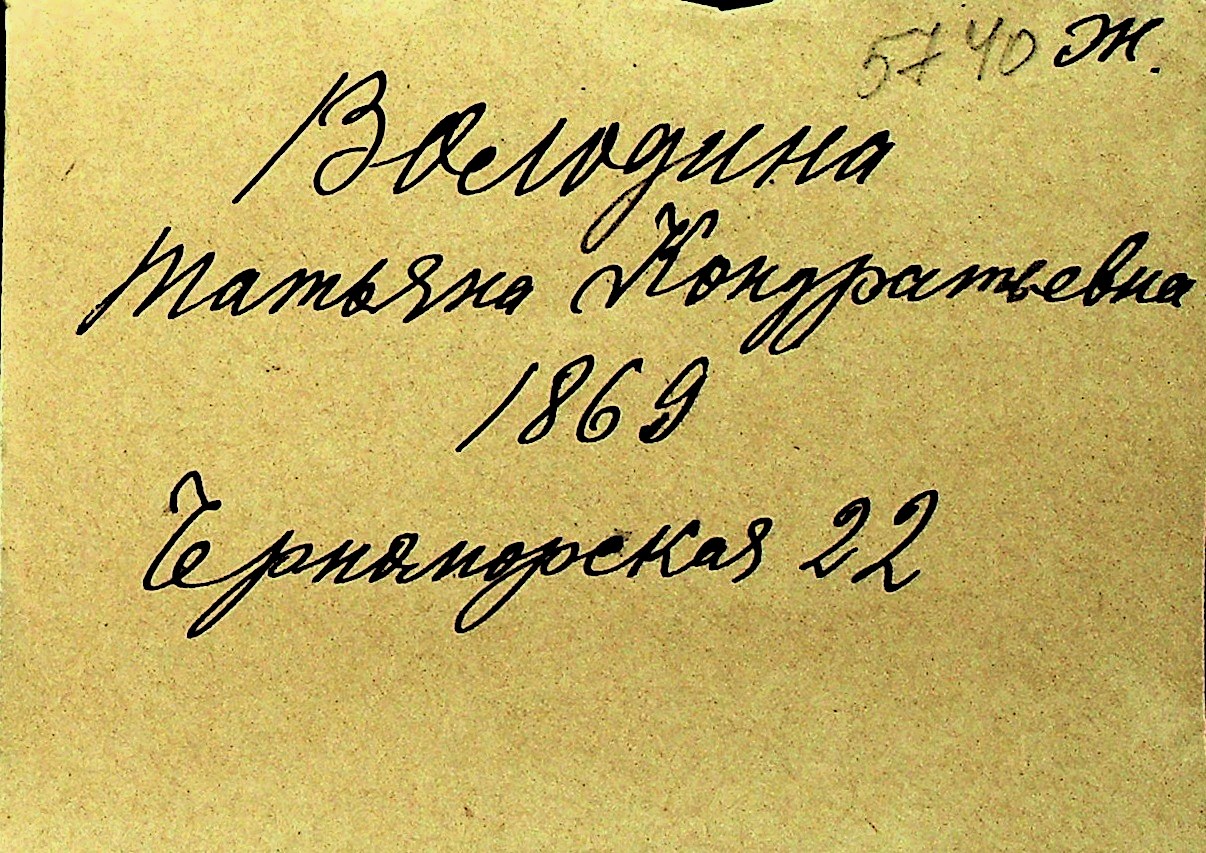 5740 Ж.
Володина
Татьяна Кондратьевна
1869
Черноморская 22